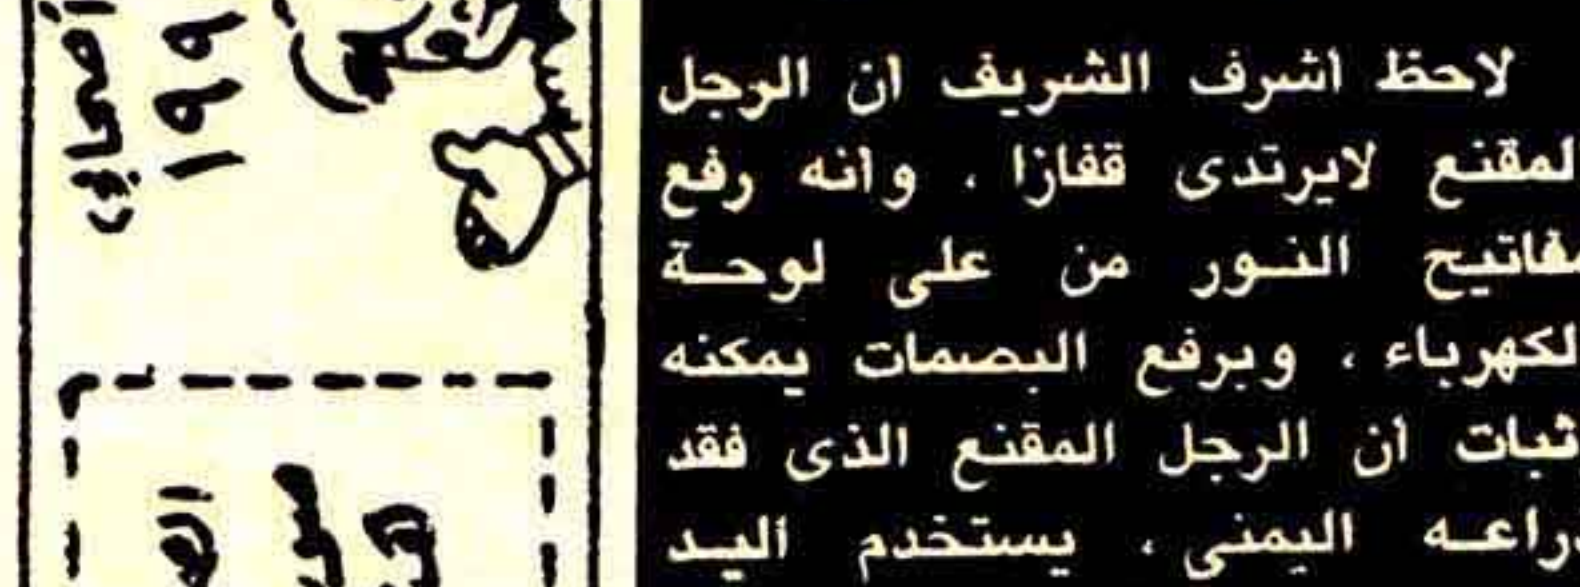 لاحظ أشرف الشريف ان الرجل
لمقنع لايرتدى قفازا ، وأنه رفع
مفاتيح النور من على لوحة
لكهرباء ، وبرفع البصمات يمكنه
ثبات أن الرجل المقنع الذى فقد
راعه اليمنى ، يستخدم اليد
١٩٩